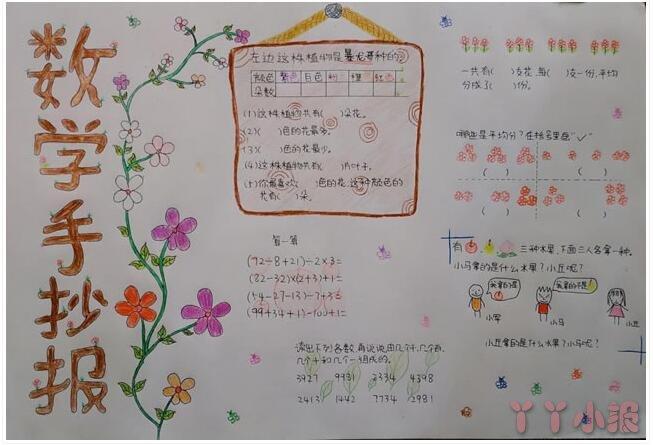 数学手抄报
左边这株植物是暴龙哥种的。
颜色 紫色 白色 粉 橙 红色
朵数
(1)这株植物共有( )朵花。
(2)( )色的花最多。
(3)( )色的花最少。
(4)这株植物共有( )片叶子。
(5)你最喜欢( )色的花,这种颜色的
共有( )朵。
算一算
(92÷8+21)÷2×3=
(82-32)×(2+3)+1=
(54-27-13)-7+3=
(99+34+1)-100+1=
读出下列各数,再说说由几个千,几个百,
几个十和几个一组成的。
3927 9931 2334 4398
2413 1442 7734 2981
一共有( )支花,每( )支一份,平均
分成了( )份。
哪些是平均分?在括号里画"✓"
( ) ( )
( ) ( )
有 三种水果,下面三人各拿一种。
小马拿的是什么水果?小丘呢?
我拿的是
我拿的不是
小军
小马
小丘
小丘拿的是什么水果?小马呢?
丫丫小报